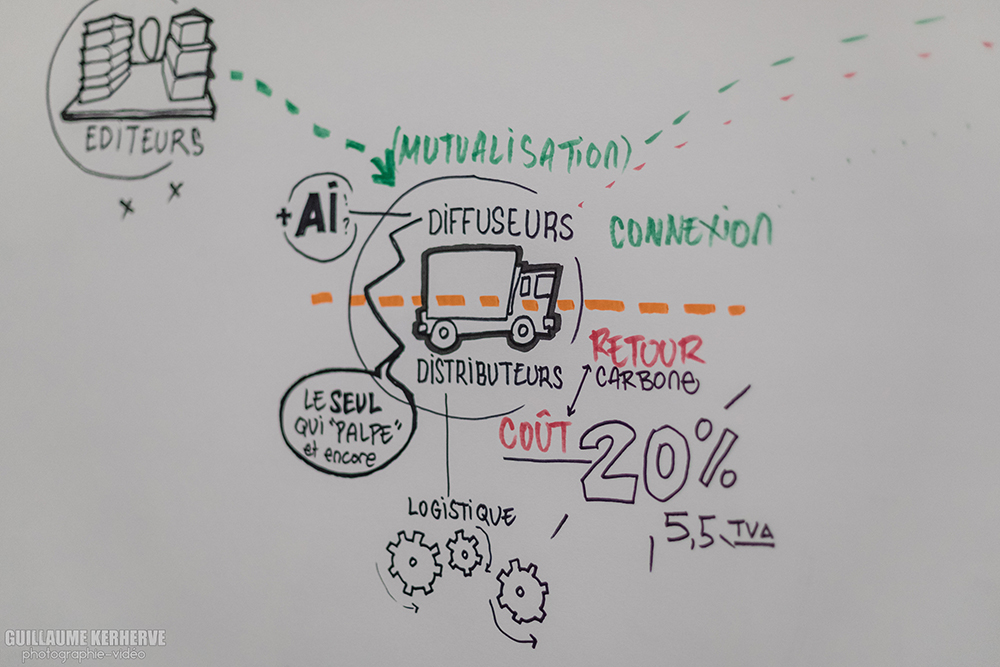 EDITEURS
(MUTUALISATION)
+ AI ?
DIFFUSEURS
CONNEXION
RETOUR
CARBONE
DISTRIBUTEURS
LE SEUL
QUI "PALPE"
et encore
COÛT
20%
5,5 TVA
LOGISTIQUE
GUILLAUME KERHERVE
photographie-vidéo